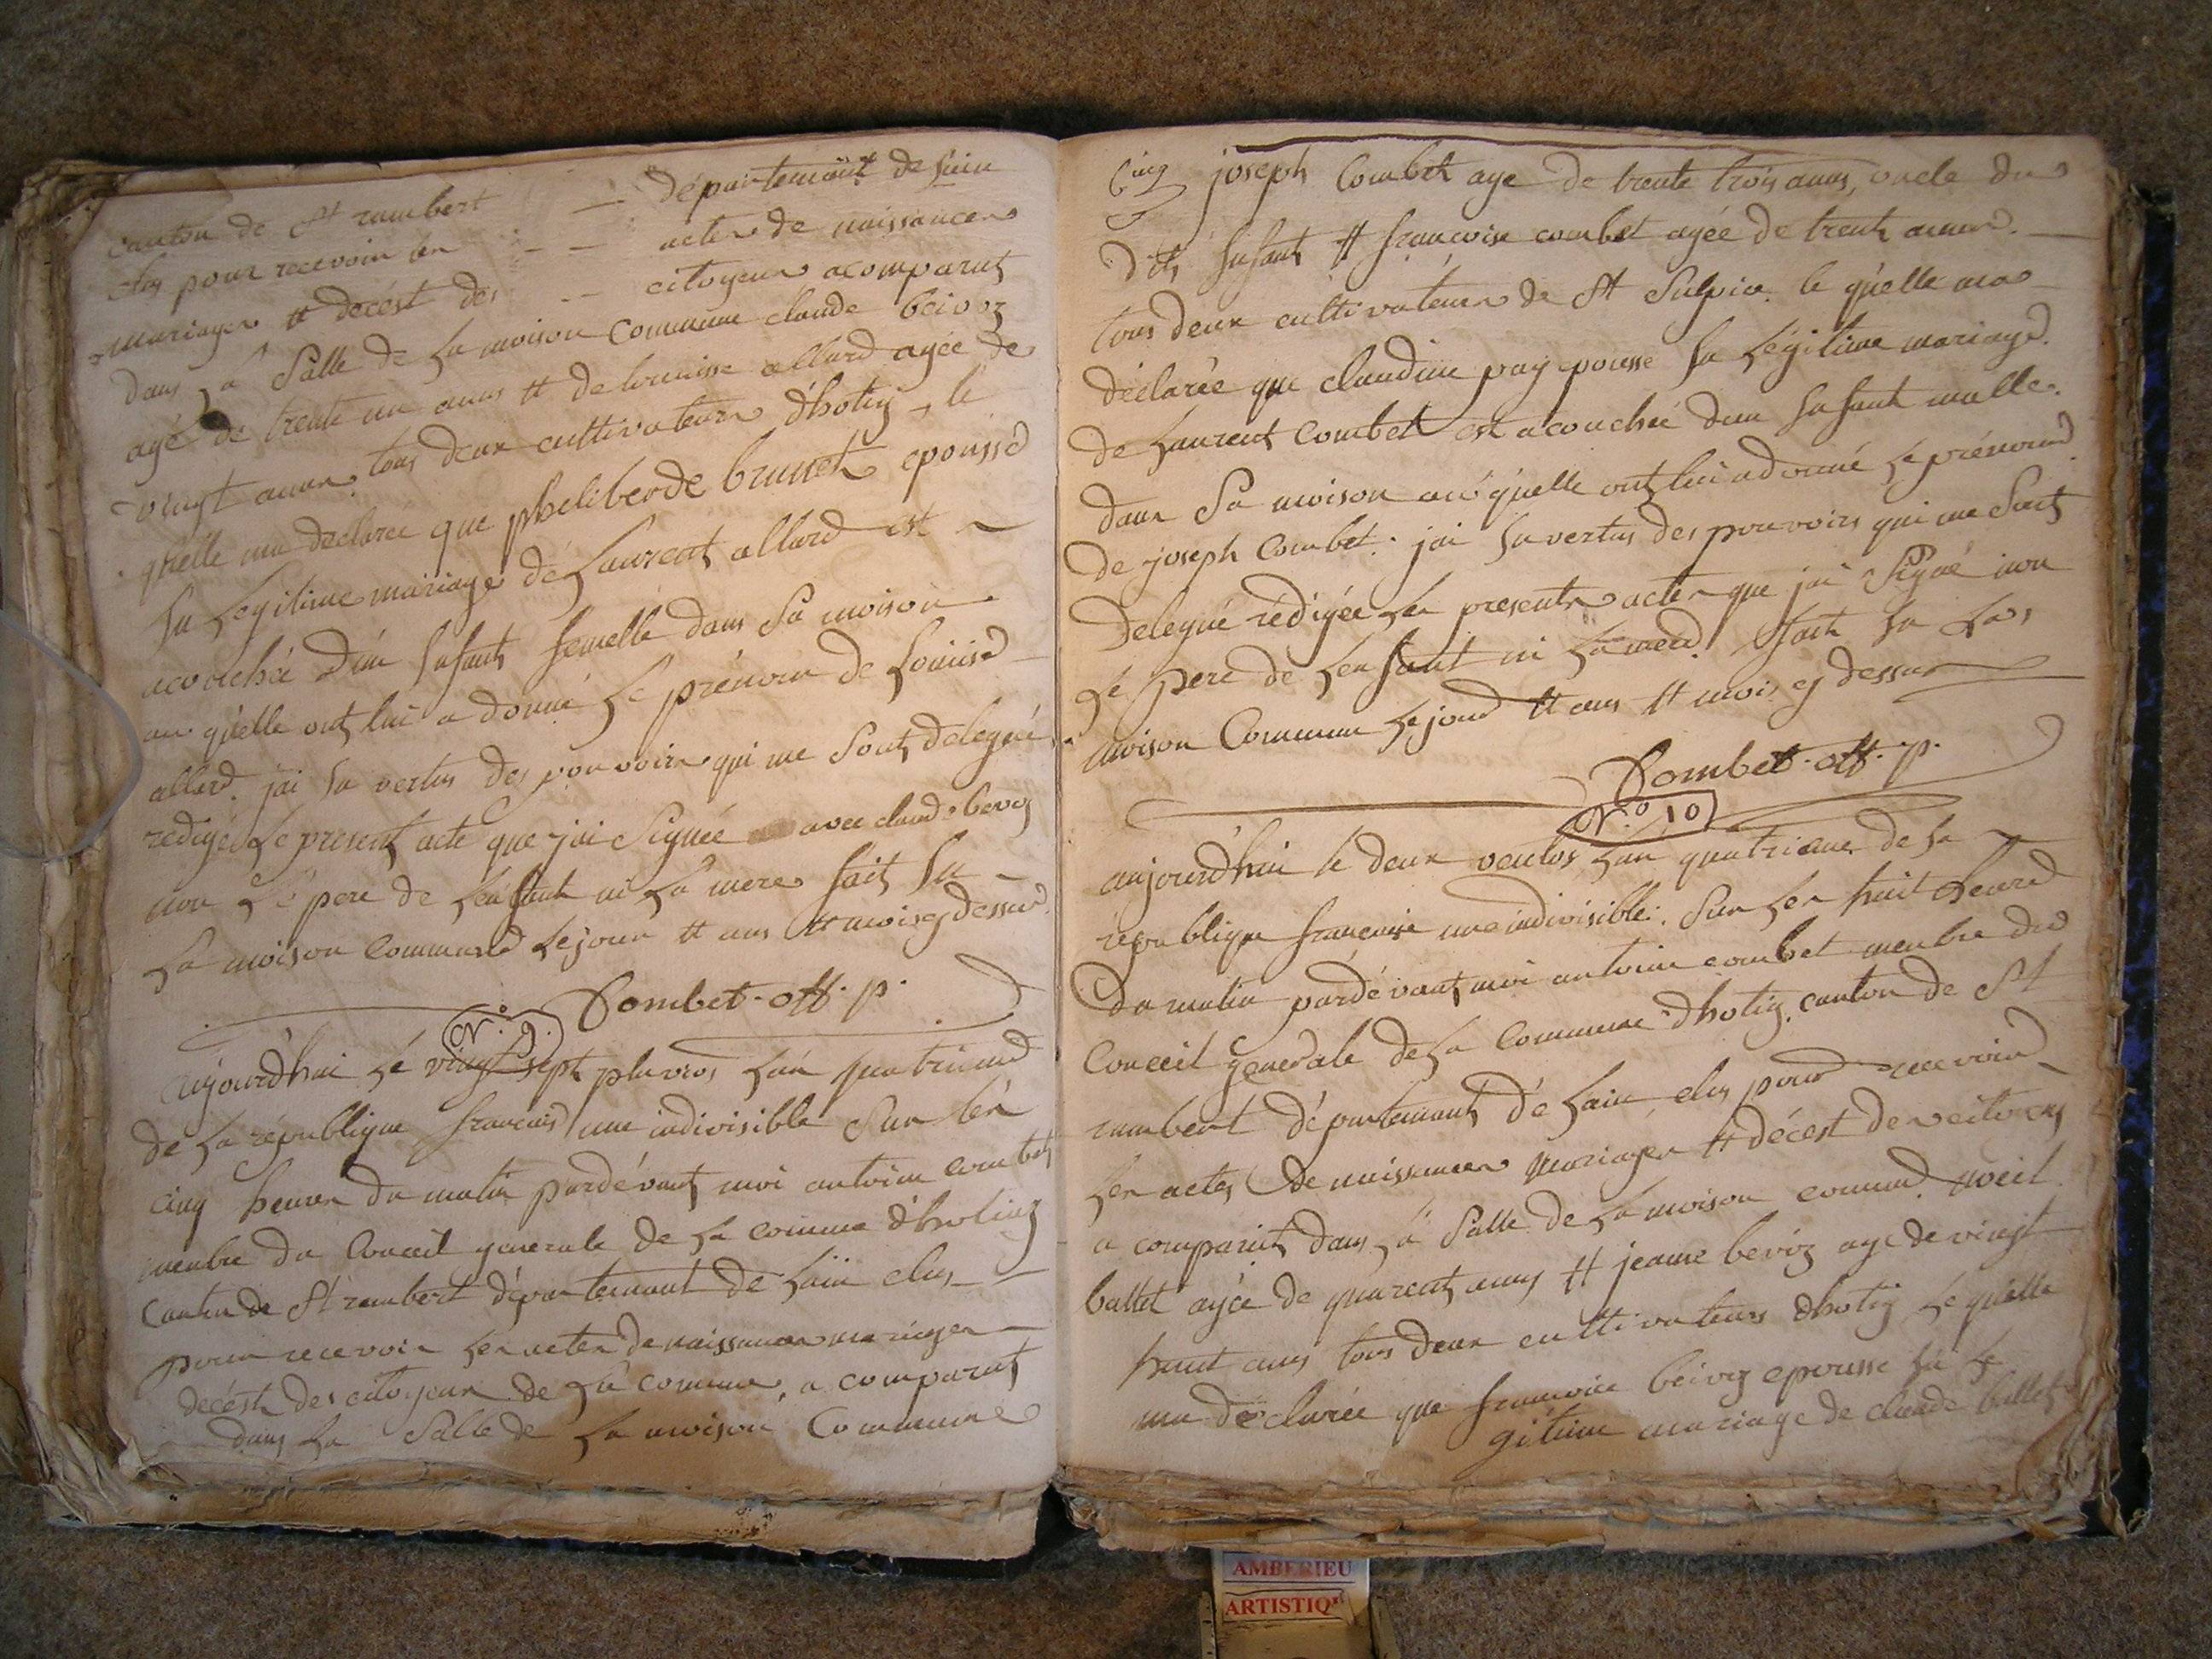 canton de St rambert — département de lain
elus pour recevoir les - - actes de naissances
mariages et decest des - - citoyens acomparut
dans la Salle de la moison commune claude beivoz
agé de trente un anns et de louuisse allard agée de
vingt anns tous deux cultivateurs d'hotig, le
quelle ma declarée que pheliberde brunet epousse
en legitime mariage de Laurent allard est
acouchée d'un enfant femelle dans Sa moison
au quelle ont lui a donné le prénom de Louise
allard. jai en vertus des pouvoirs qui me Sont delegué
redigé le present acte que jai Signée avec claude bevoz
non le pere de lenfant ni la mere fait en
la moison commune le jour et ans et mois ej dessus
Combet. off. p.
N.° 9.
aujourdhui le vingt sept pluvios lan quatrieme
de la république francaise une indivisible Sur les
cinq heures du matin pardévant moi antoine combet
menbre du Conceil generale de la comune d'hoting
Canton de St rambert département de lain elus
pour recevoir les actes de naissances mariages
decest des citoyens de la comune, a comparut
dans la Salle de la moison Commune
Cinq joseph Combet age de trente trois anns, oncle du
dit enfant et francoise combet agée de trente anns.
tous deux cultivateurs de St Sulpice. le quelle ma
déclarée que claudine pay epousse en légitime mariage.
de Laurent Combet est acouchée dun enfant malle.
dans Sa moison au quelle ont lui a donné le prénom
de joseph Combet. jai en vertus des pouvoirs qui me Sont
delegué rédigée les presents actes que jai Signé non
le pere de lenfant ni la mere. fait en la
moison Commune le jour et ans et mois ej dessus
Combet. off. p.
N.° 10
aujourdhui le deux ventos lan quatrieme de la
republique francaise une indivisible. Sur les huit heures
du matin pardévant moi antoine combet menbre du
Conceil generale de la Commune d'hotig. canton de St
rambert département de lain elus pour recevoir
les actes de naissances mariages et décest des citoyens
a comparut dans la Salle de la moison comune noeil
ballet agée de quarente anns et jeanne bevoz age de vingt
huit anns tous deux cultivateurs d'hotig le quelle
ma déclarée que francoise beivoz epousse en le
gitime mariage de claude ballet
AMBERIEU
ARTISTIQ